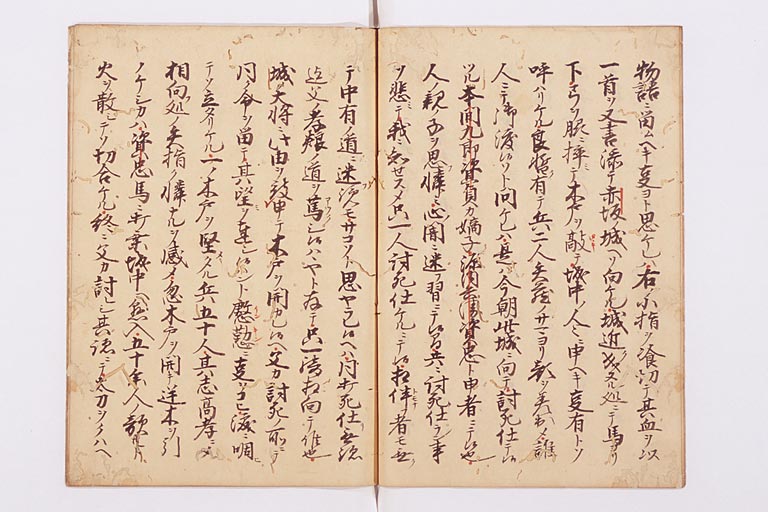 物語ニ留ムヘキ事ヨト思ケレハ右ノ小指ヲ喰切テ其血ヲ以
一首ヲ又書添テ赤坂城ヘソ向ケル城近成ヌル処ニテ馬ヨリ
下弓ヲ脇挟テ木戸ヲ敲テ城中ノ人々ニ申ヘキ事有トソ
呼ハリケル良暫有テ兵二人矢蔵ノサマヨリ顔ヲ差出テ誰
人ニテ御渡候ソト問ケレハ是ハ今朝此城ニ向テ討死仕テ候
ツル本間九郎資貞カ嫡子源内兵衛資忠ト申者ニテ候也
人ノ親ノ子ヲ思憐ミ心闇ニ迷フ習ニテ候間共ニ討死仕ラン事
ヲ悲テ我ニ知セスメ只一人討死仕ケルニテ候相伴者モ無
テ中有ノ道ニ迷覧モサコソト思ヤラレ候ヘハ同打死仕無跡
迄父ノ孝ノ道ヲ篤シ候ハヤト存テ只一騎相向テ候也
城ノ大将ニ此由ヲ被申テ木戸ヲ開カレ候ヘ父カ討死ノ所ニテ
同ク命ヲ留テ其望ヲ達シ候ント慇懃ニ事ヲ乞涙ニ咽
テソ立タリケル一ノ木戸ヲ堅タル兵五十人其志高孝ニメ
相向処ノ矢指ク憐ナルヲ感メ忽木戸ヲ開テ逆木ヲ引
ノケシカハ資忠馬ニ打乗城中ヘ懸入五十余人ノ敵ト
火ヲ散シテソ切合ケル終ニ父カ討レシ其跡ニテ太刀ヲクハヘ